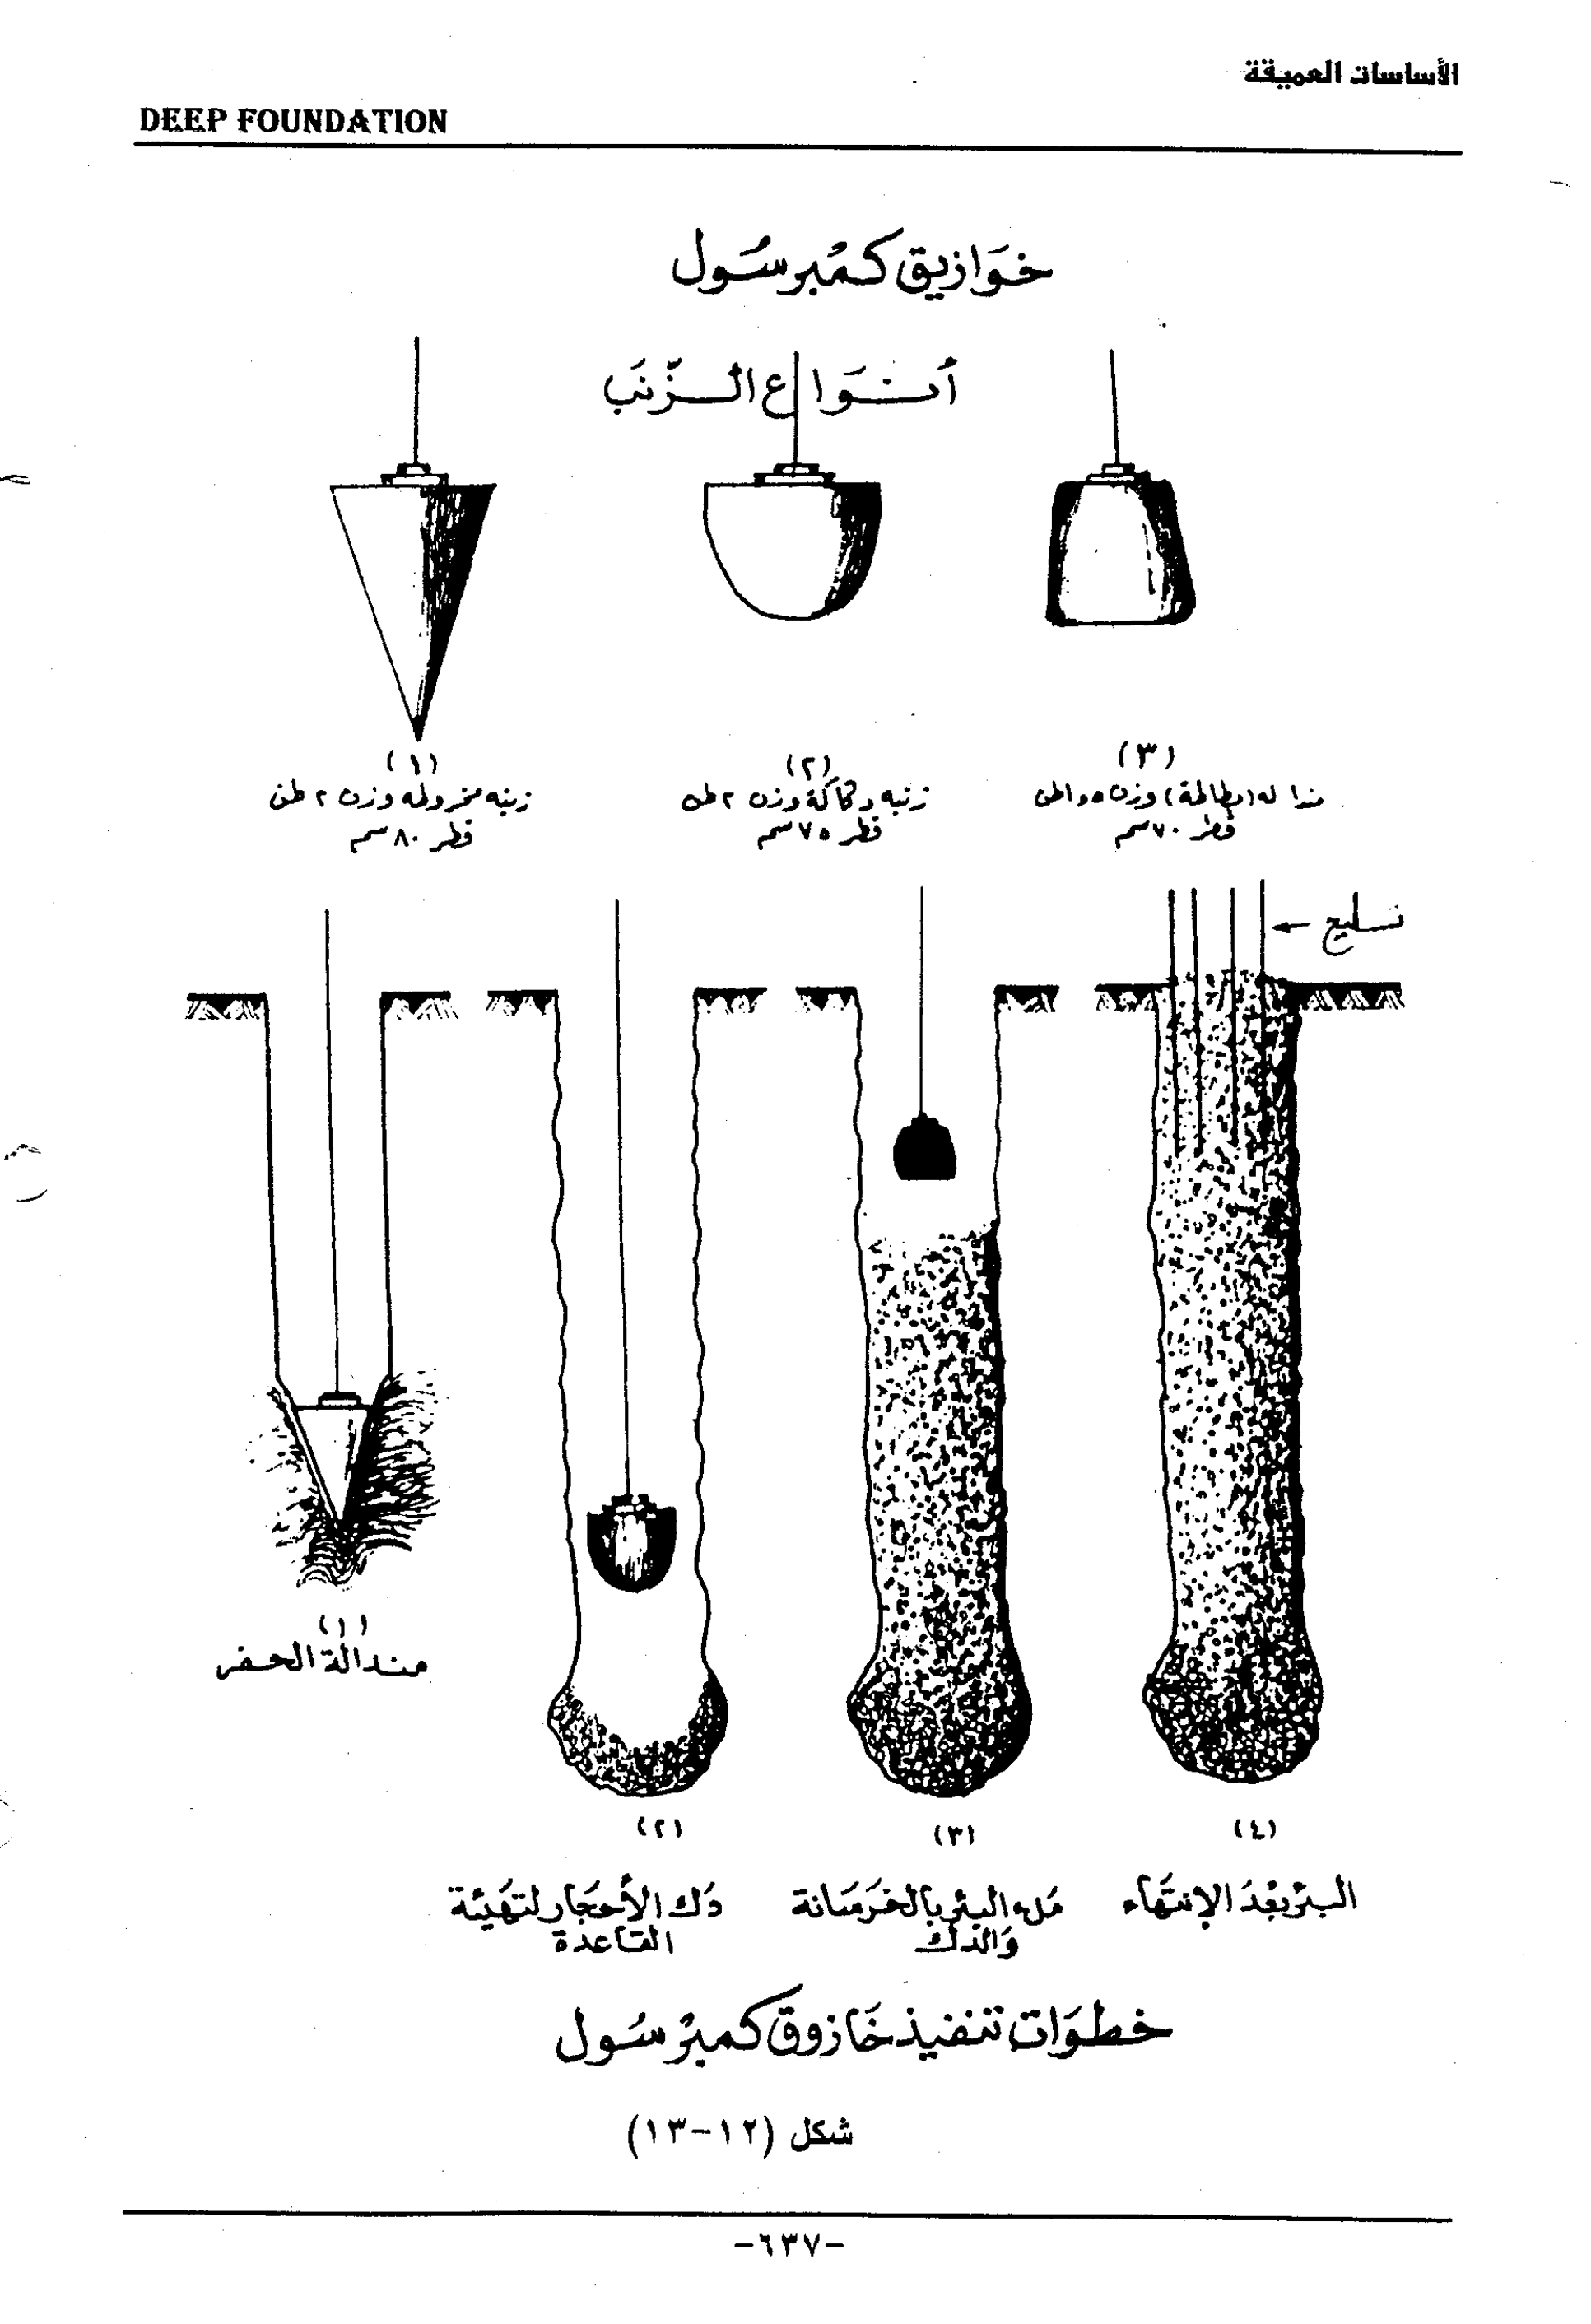 الأساسات العميقة
DEEP FOUNDATION
خوازيق كمبرسول
أنواع الزنب
(٣)
(٢)
(١)
مندالة (بطالحة) وزن ١٫٥ طن
قطر ٧٠ سم
زنبه دكاكة وزن ٢ طن
قطر ٧٥ سم
زنبه مخروطه وزن ٢ طن
قطر ٨٠ سم
تسليح
(١)
مندالة الحفر
(٢)
دك الأحجار لتهيئة
القاعدة
(٣)
ملء البئر بالخرسانة
والدك
(٤)
البئر بعد الإنتهاء
خطوات تنفيذ خازوق كمبرسول
شكل (١٢-١٣)
-٦٣٧-